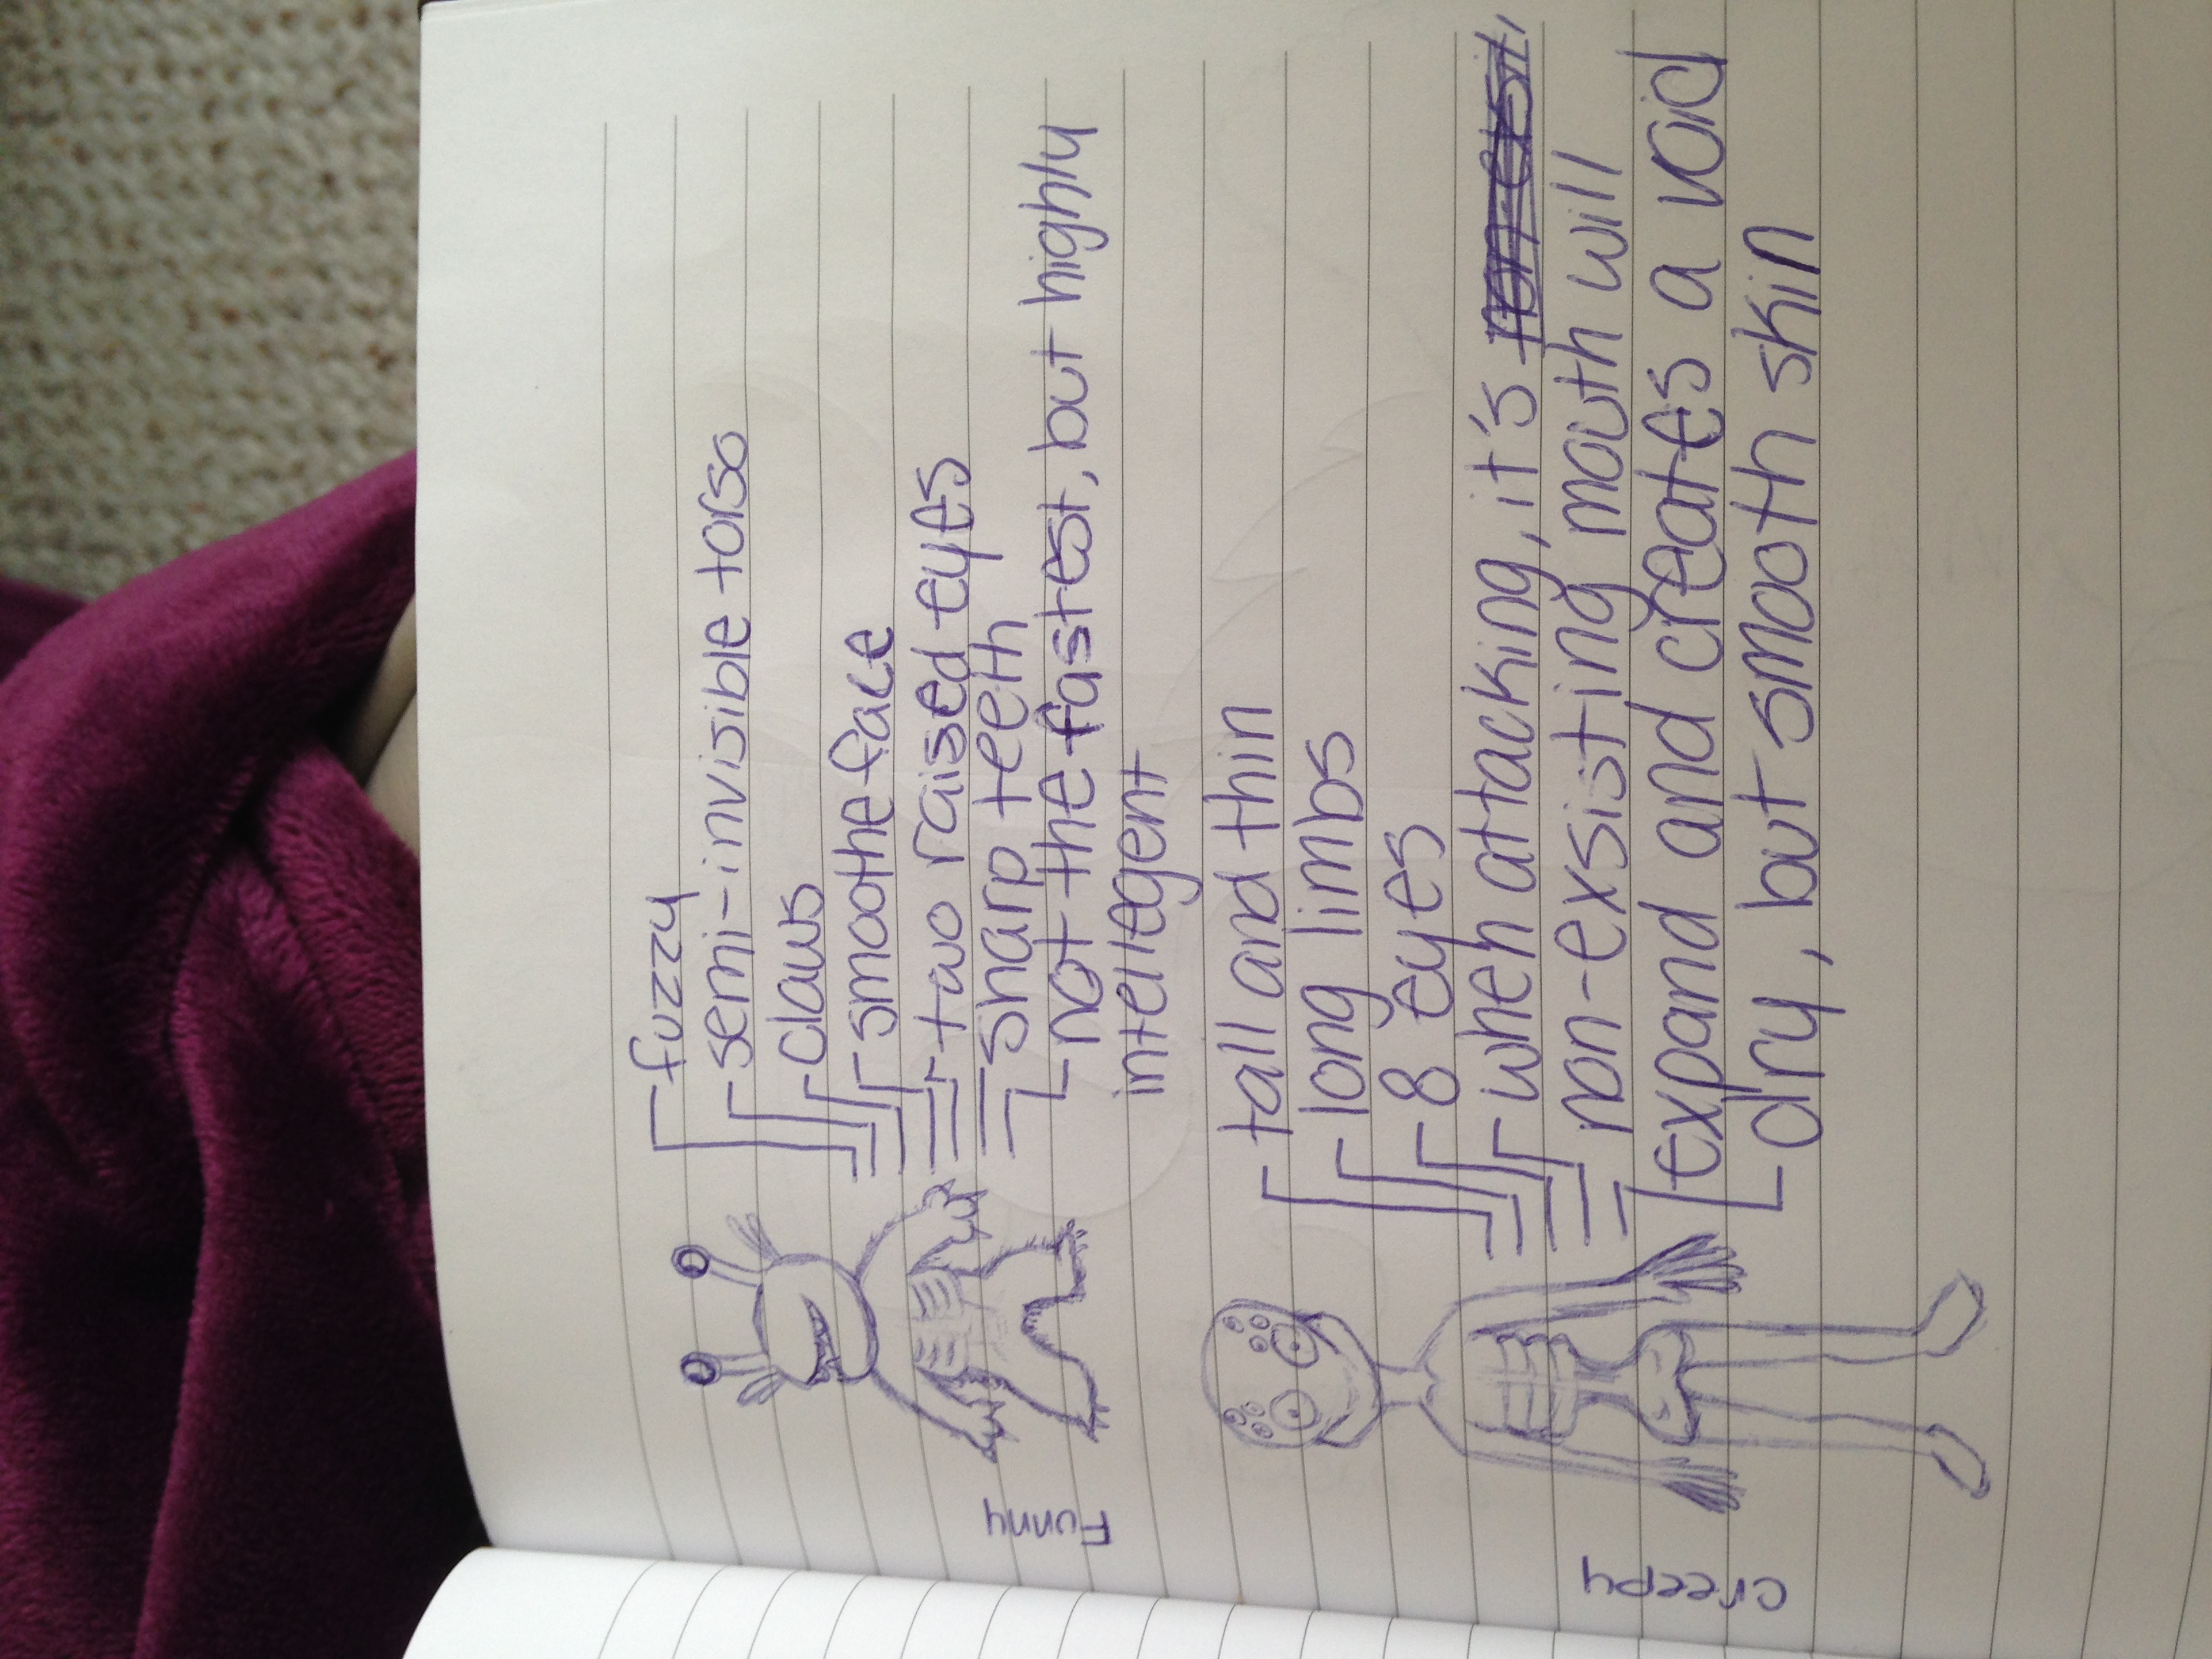 Funny
fuzzy
semi-invisible torso
claws
smoothe face
two raised eyes
sharp teeth
not the fastest, but highly
intellegent
creepy
tall and thin
long limbs
8 eyes
when attacking, it's
non-exsisting mouth will
expand and creates a void
dry, but smooth skin